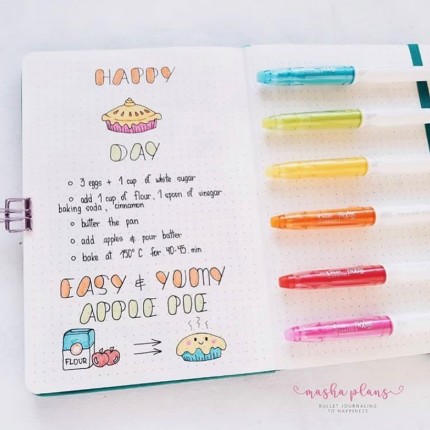 HAPPY
DAY
3 eggs + 1 cup of white sugar
add 1 cup of flour, 1 spoon of vinegar
baking soda, cinnamon
butter the pan
add apples & pour batter
bake at C for 40-45 min
EASY & YUMY
APPLE PIE
FLOUR
masha plans
BULLET JOURNALING
TO HAPPINESS